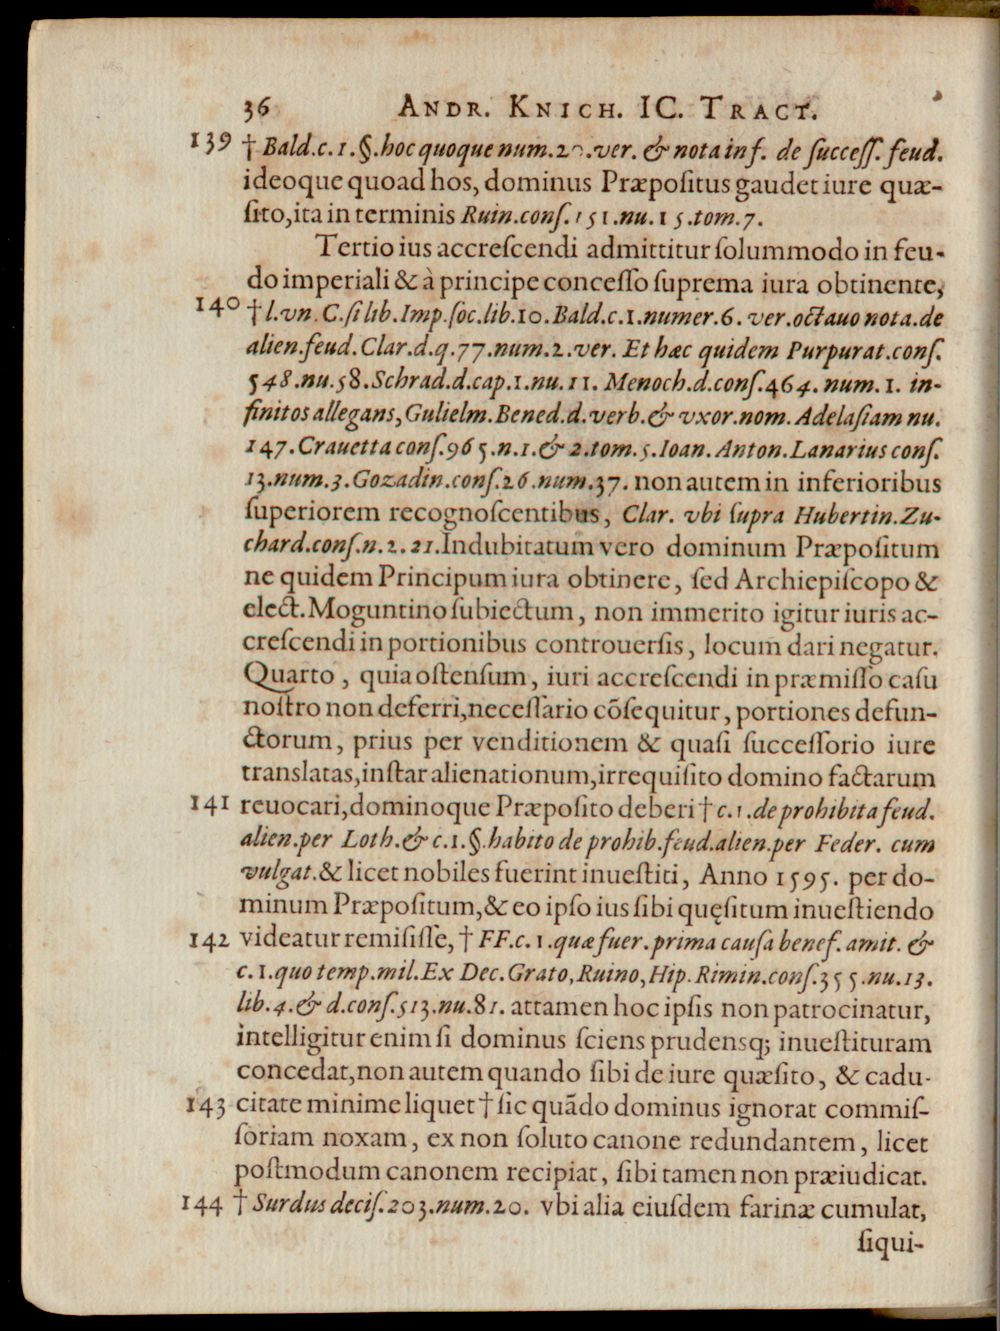 36 ANDR. KNICH. IC. TRACT.
139 † Bald.c.1.§.hoc quoque num.20.ver. & nota inf. de ſucceſſ. feud.
ideoque quoad hos, dominus Præpoſitus gaudet iure quæ-
ſito,ita in terminis Ruin.conſ.151.nu.15.tom.7.
Tertio ius accreſcendi admittitur ſolummodo in feu-
do imperiali & à principe conceſſo ſuprema iura obtinente,
140 † l.vn.C.ſi lib.Imp.ſoc.lib.10.Bald.c.1.numer.6.ver.octauo nota.de
alien.feud.Clar.d.q.77.num.2.ver. Et hæc quidem Purpurat.conſ.
548.nu.58.Schrad.d.cap.1.nu.11. Menoch.d.conſ.464.num.1. in-
finitos allegans,Gulielm.Bened.d.verb.& vxor.nom. Adelaſiam nu.
147.Crauetta conſ.965.n.1.& 2.tom.5.Ioan. Anton.Lanarius conſ.
13.num.3.Gozadin.conſ.26.num.37. non autem in inferioribus
ſuperiorem recognoſcentibus, Clar. vbi ſupra Hubertin.Zu-
chard.conſ.n.2.21.Indubitatum vero dominum Præpoſitum
ne quidem Principum iura obtinere, ſed Archiepiſcopo &
elect.Moguntino ſubiectum, non immerito igitur iuris ac-
creſcendi in portionibus controuerſis, locum dari negatur.
Quarto, quia oſtenſum, iuri accreſcendi in præmiſſo caſu
noſtro non deferri,neceſſario cõſequitur, portiones defun-
ctorum, prius per venditionem & quaſi ſucceſſorio iure
translatas,inſtar alienationum,irrequiſito domino factarum
141 reuocari,dominoque Præpoſito deberi † c.1.de prohibita feud.
alien.per Loth.& c.1.§.habito de prohib.feud.alien.per Feder. cum
vulgat.& licet nobiles fuerint inueſtiti, Anno 1595. per do-
minum Præpoſitum,& eo ipſo ius ſibi quęſitum inueſtiendo
142 videatur remiſiſſe, † FF.c.1.quæ fuer.prima cauſa benef. amit. &
c.1.quo temp.mil.Ex Dec.Grato,Ruino,Hip.Rimin.conſ.355.nu.13.
lib.4.& d.conſ.513.nu.81. attamen hoc ipſis non patrocinatur,
intelligitur enim ſi dominus ſciens prudensq; inueſtituram
concedat,non autem quando ſibi de iure quæſito, & cadu-
143 citate minime liquet † ſic quãdo dominus ignorat commiſ-
ſoriam noxam, ex non ſoluto canone redundantem, licet
poſtmodum canonem recipiat, ſibi tamen non præiudicat.
144 † Surdus deciſ.203.num.20. vbi alia eiuſdem farinæ cumulat,
ſiqui-